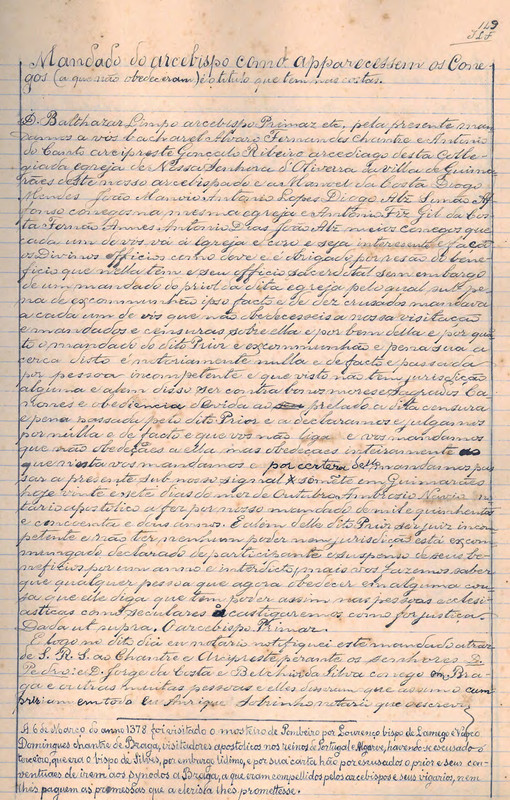 149
Mandado do arcebispo como apparecessem os Cone-
gos (a que não obedeceram) é o titulo que tem nas costas.
D. Balthazar Limpo arcebispo Primaz etc, pela presente man-
damos a vós bacharel Alvaro Fernandes Chantre e Antonio
do Canto arcipreste Gonçalo Ribeiro arcediago desta Colle-
giada egreja de Nossa Senhora d'Oliveira da villa de Guima-
rães deste nosso arcebispado e a Manoel da Costa Diogo
Mendes João Antonio Lopes Diogo Alz Simão Af-
fonso conegos na mesma egreja e Antonio Frz Gil da Cos-
ta Fernão Annes Antonio Dias João Alz meios conegos que
cada um de vós vá á Egreja e côro e seja interesente e faça
os Divinos officios como deve e é obrigado por rasão do bene-
ficio que nella tem e seu officio sacerdotal sem embargo
de um mandado do priol da dita egreja pelo qual sub pe-
na de excommunhão ipso facto e de dez crusados mandava
a cada um de vós que não obedecesseis a nossa visitação
e mandados e censuras sobre ella e por bem della e por quan-
to o mandado do dito Prior e excommunhão e pena sua á
cerca disto é notoriamente nulla e de facto e passada
por pessoa incompetente e que visto não tem jurisdicção
alguma e alem disso ser contra bonos mores e sagrados Ca-
nones e obediencia devida ao prelado a dita censura
e pena passada pelo dito Prior e a declaramos e julgamos
por nulla e de facto e que vós não liga e vos mandamos
que não obedeçaes a ella mas obedeçaes inteiramente ao
que nesta vos mandamos e por certeza delle mandamos pas-
sar a presente sub nosso signal somente em Guimarães
hoje vinte e sete dias do mez de Outubro Ambrosio no-
tario apostolico a fez por nosso mandado de mil quinhentos
e cincoenta e dous annos. E alem dello dito Prior ser juiz incom-
petente e não ter nenhum poder nem jurisdicção está excom-
mungado declarado de participante e suspenso de seus be-
neficios por um anno e interdicto, mais vos fazemos saber
que qualquer pessoa que agora obedecer em alguma cou-
sa que elle diga que tem poder assim nas pessoas ecclesi-
asticas como seculares castigaremos como fôr justiça.
Dada ut supra. O arcebispo Primaz.
E logo no dito dia eu notario notifiquei este mandado atraz
de S. R. S. ao Chantre e Arcipreste perante os senhores D.
Pedro e D. Jorge da Costa e Belchior da Silva conego em Bra-
ga e outras muitas pessoas e elles disseram que assim o cum-
priram em todo eu Anrique Sobrinho notario que o escrevi
A 6 de Março do anno 1378 foi visitado o mosteiro de Pombeiro por Lourenço bispo de Lamego e Vasco
Domingues chantre de Braga, visitadores apostolicos nos reinos de Portugal e Algarves, havendo-se escusado o
terceiro, que era o bispo de Silves, por embargo lidimo, e por sua carta hão por escusados o prior e seus con-
ventuaes de irem aos synodos a Braga, a que eram compellidos pelos arcebispos e seus vigarios, nem
lhes paguem as promessas que a clerisia lhes promettesse.